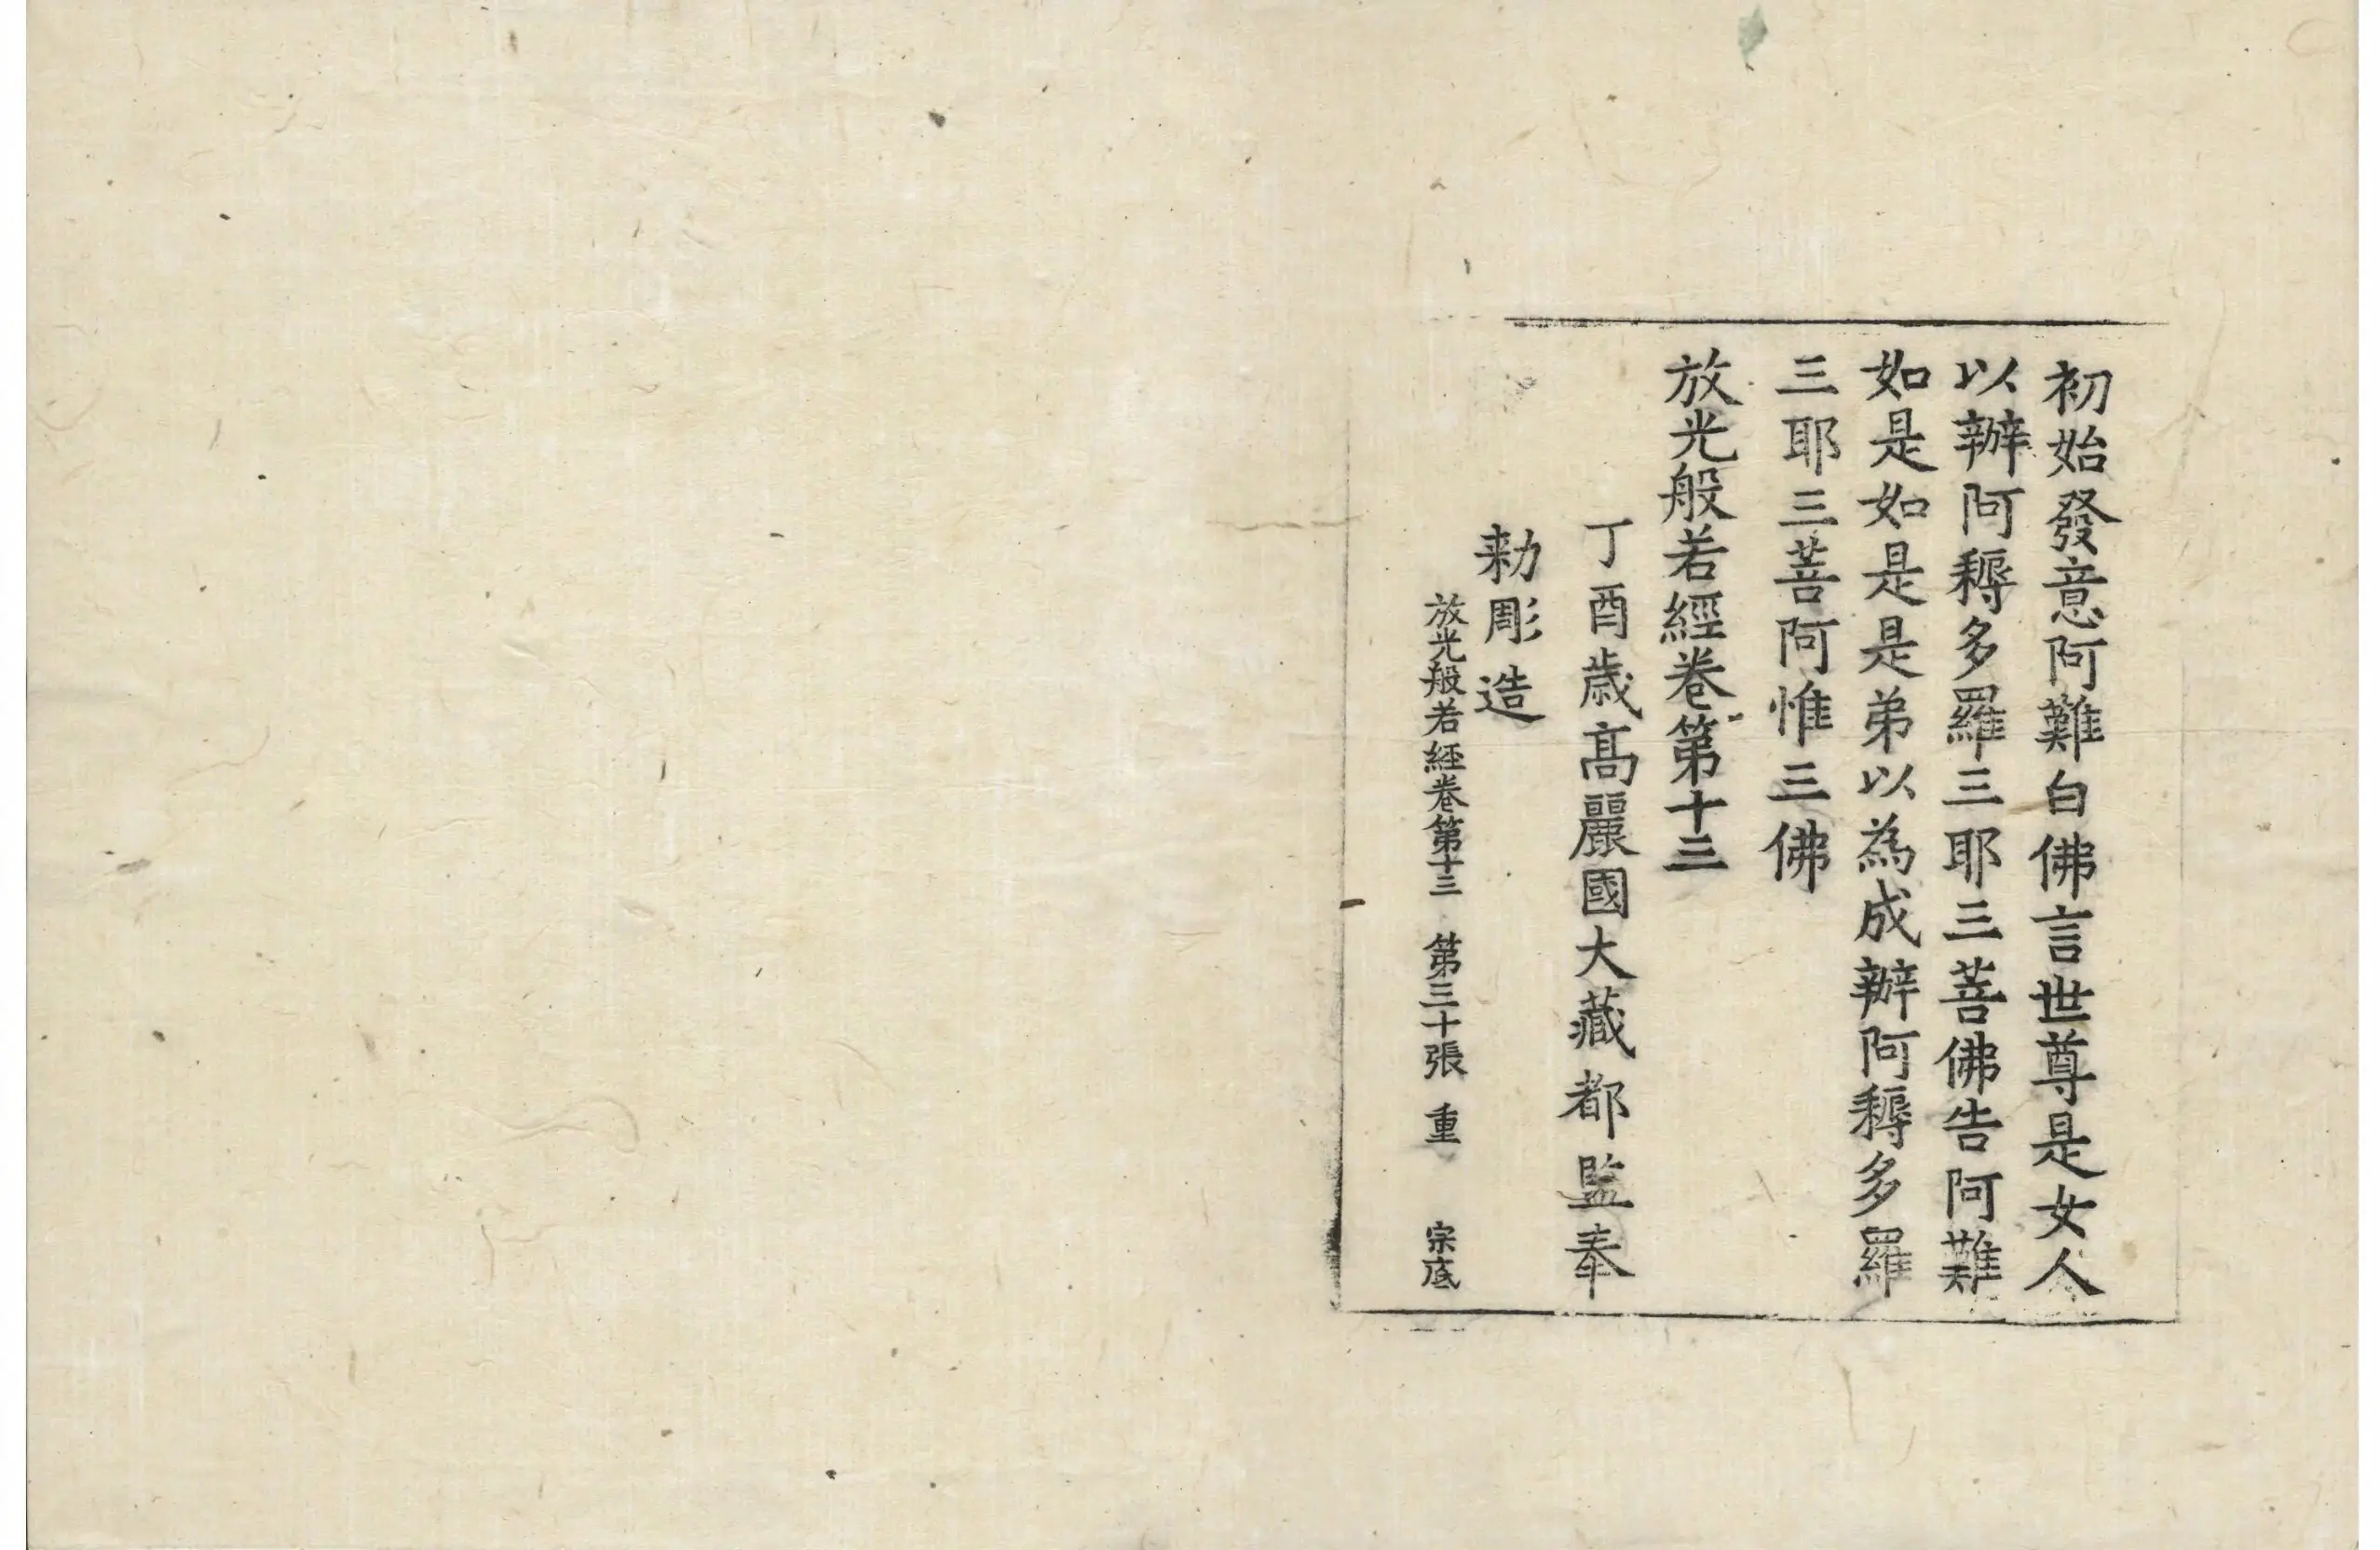 初始發意阿難白佛言世尊是女人
以辦阿耨多羅三耶三菩佛告阿難
如是如是是弟以為成辦阿耨多羅
三耶三菩阿惟三佛
放光般若經卷第十三
丁酉歲高麗國大藏都監奉
勅彫造
放光般若経卷第十三 第三十張 重 宗底